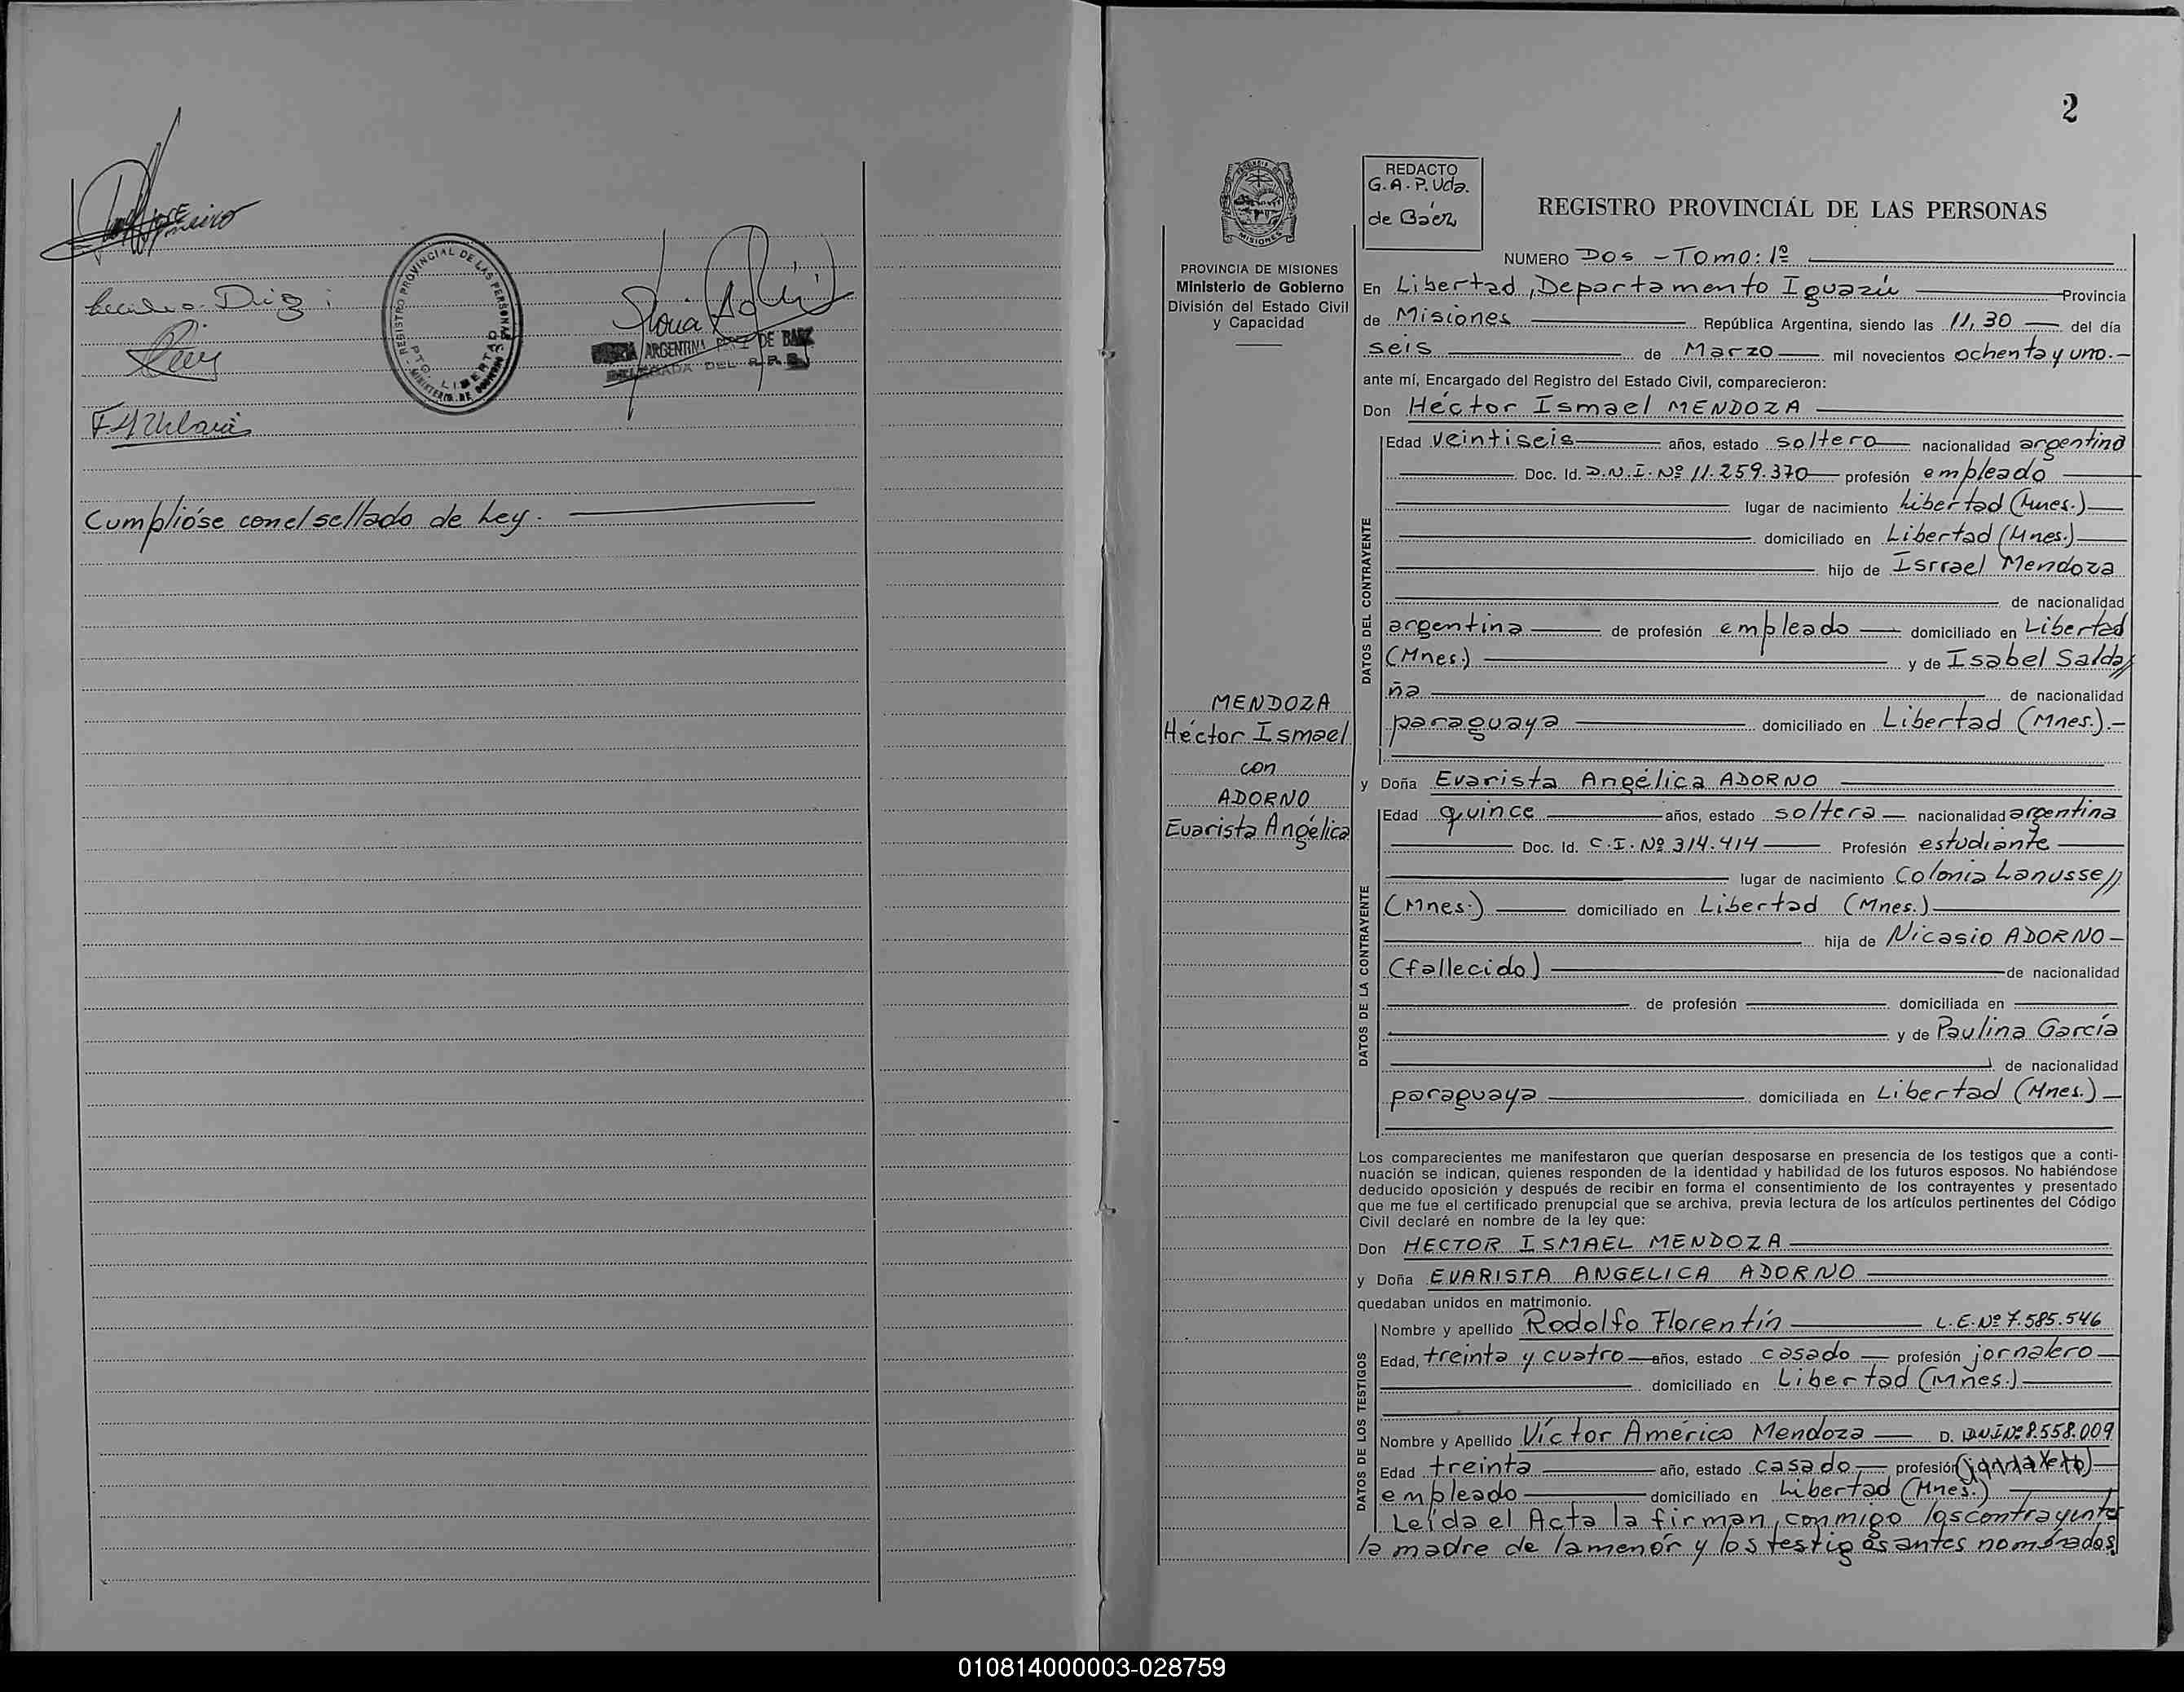 Cumplióse con el sellado de Ley.
REGISTRO PROVINCIAL DE LAS PERSONAS
PTO. LIBERTAD
MINISTERIO DE GOBIERNO
ARGENTINA
DE BAEZ
DELEGADA DEL R.P.P.
2
REDACTO
G.A.P. Vda.
de Báez
REGISTRO PROVINCIÁL DE LAS PERSONAS
MISIONES
PROVINCIA DE MISIONES
Ministerio de Gobierno
División del Estado Civil
y Capacidad
NUMERO Dos - Tomo: 1º
En Libertad, Departamento Iguazú Provincia
de Misiones República Argentina, siendo las 11,30 del día
seis de Marzo mil novecientos ochenta y uno.-
ante mí, Encargado del Registro del Estado Civil, comparecieron:
Don Héctor Ismael MENDOZA
DATOS DEL CONTRAYENTE
Edad veintiseis años, estado soltero nacionalidad argentino
Doc. Id. D.N.I. Nº 11.259.370 profesión empleado
lugar de nacimiento Libertad (Mnes.)
domiciliado en Libertad (Mnes.)
hijo de Isrrael Mendoza
de nacionalidad
argentina de profesión empleado domiciliado en Libertad
(Mnes.) y de Isabel Salda//
ña de nacionalidad
paraguaya domiciliado en Libertad (Mnes.).-
MENDOZA
Héctor Ismael
con
ADORNO
Evarista Angélica
y Doña Evarista Angélica ADORNO
DATOS DE LA CONTRAYENTE
Edad quince años, estado soltera nacionalidad argentina
Doc. Id. C.I. Nº 314.414 Profesión estudiante
lugar de nacimiento Colonia Lanusse//
(Mnes.) domiciliado en Libertad (Mnes.)
hija de Nicasio ADORNO-
(fallecido) de nacionalidad
de profesión domiciliada en
y de Paulina García
de nacionalidad
paraguaya domiciliada en Libertad (Mnes.)
Los comparecientes me manifestaron que querían desposarse en presencia de los testigos que a conti-
nuación se indican, quienes responden de la identidad y habilidad de los futuros esposos. No habiéndose
deducido oposición y después de recibir en forma el consentimiento de los contrayentes y presentado
que me fue el certificado prenupcial que se archiva, previa lectura de los artículos pertinentes del Código
Civil declaré en nombre de la ley que:
Don HECTOR ISMAEL MENDOZA
y Doña EVARISTA ANGELICA ADORNO
quedaban unidos en matrimonio.
DATOS DE LOS TESTIGOS
Nombre y apellido Rodolfo Florentín L.E. Nº 7.585.546
Edad, treinta y cuatro años, estado casado profesión jornalero
domiciliado en Libertad (Mnes.)
Nombre y Apellido Víctor Américo Mendoza D. DNI Nº 8.558.009
Edad treinta año, estado casado profesión
empleado domiciliado en Libertad (Mnes.)
Leída el Acta la firman, conmigo los contrayentes
la madre de la menor y los testigos antes nombrados,
010814000003-028759